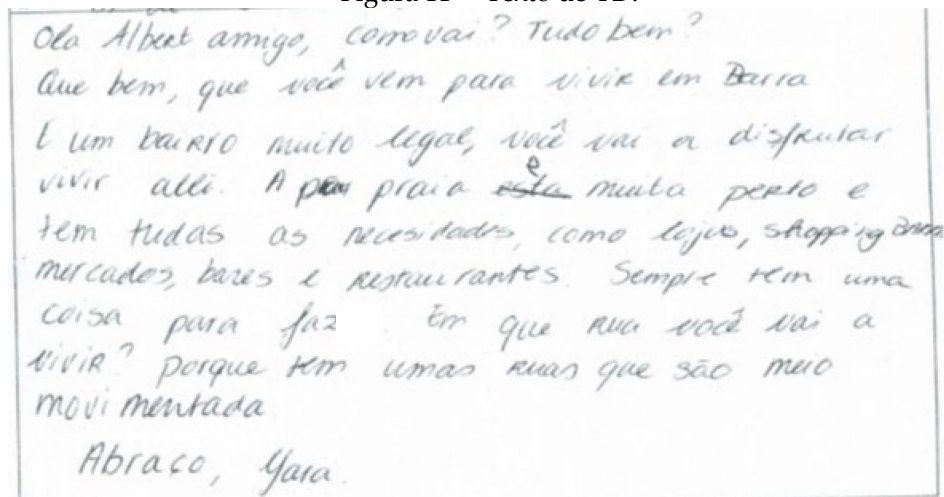 Ola Albert amigo, como vai? Tudo bem?
Que bem, que você vem para vivir em Barra
É um bairro muito legal, você vai a disfrutar
vivir alli. A praia é muita perto e
tem tudas as necesidades, como lojas, shopping
mercados, bares e restaurantes. Sempre tem uma
coisa para faz . Em que rua você vai a
vivir? Porque tem umas ruas que são meio
movimentada
Abraço, Yara.